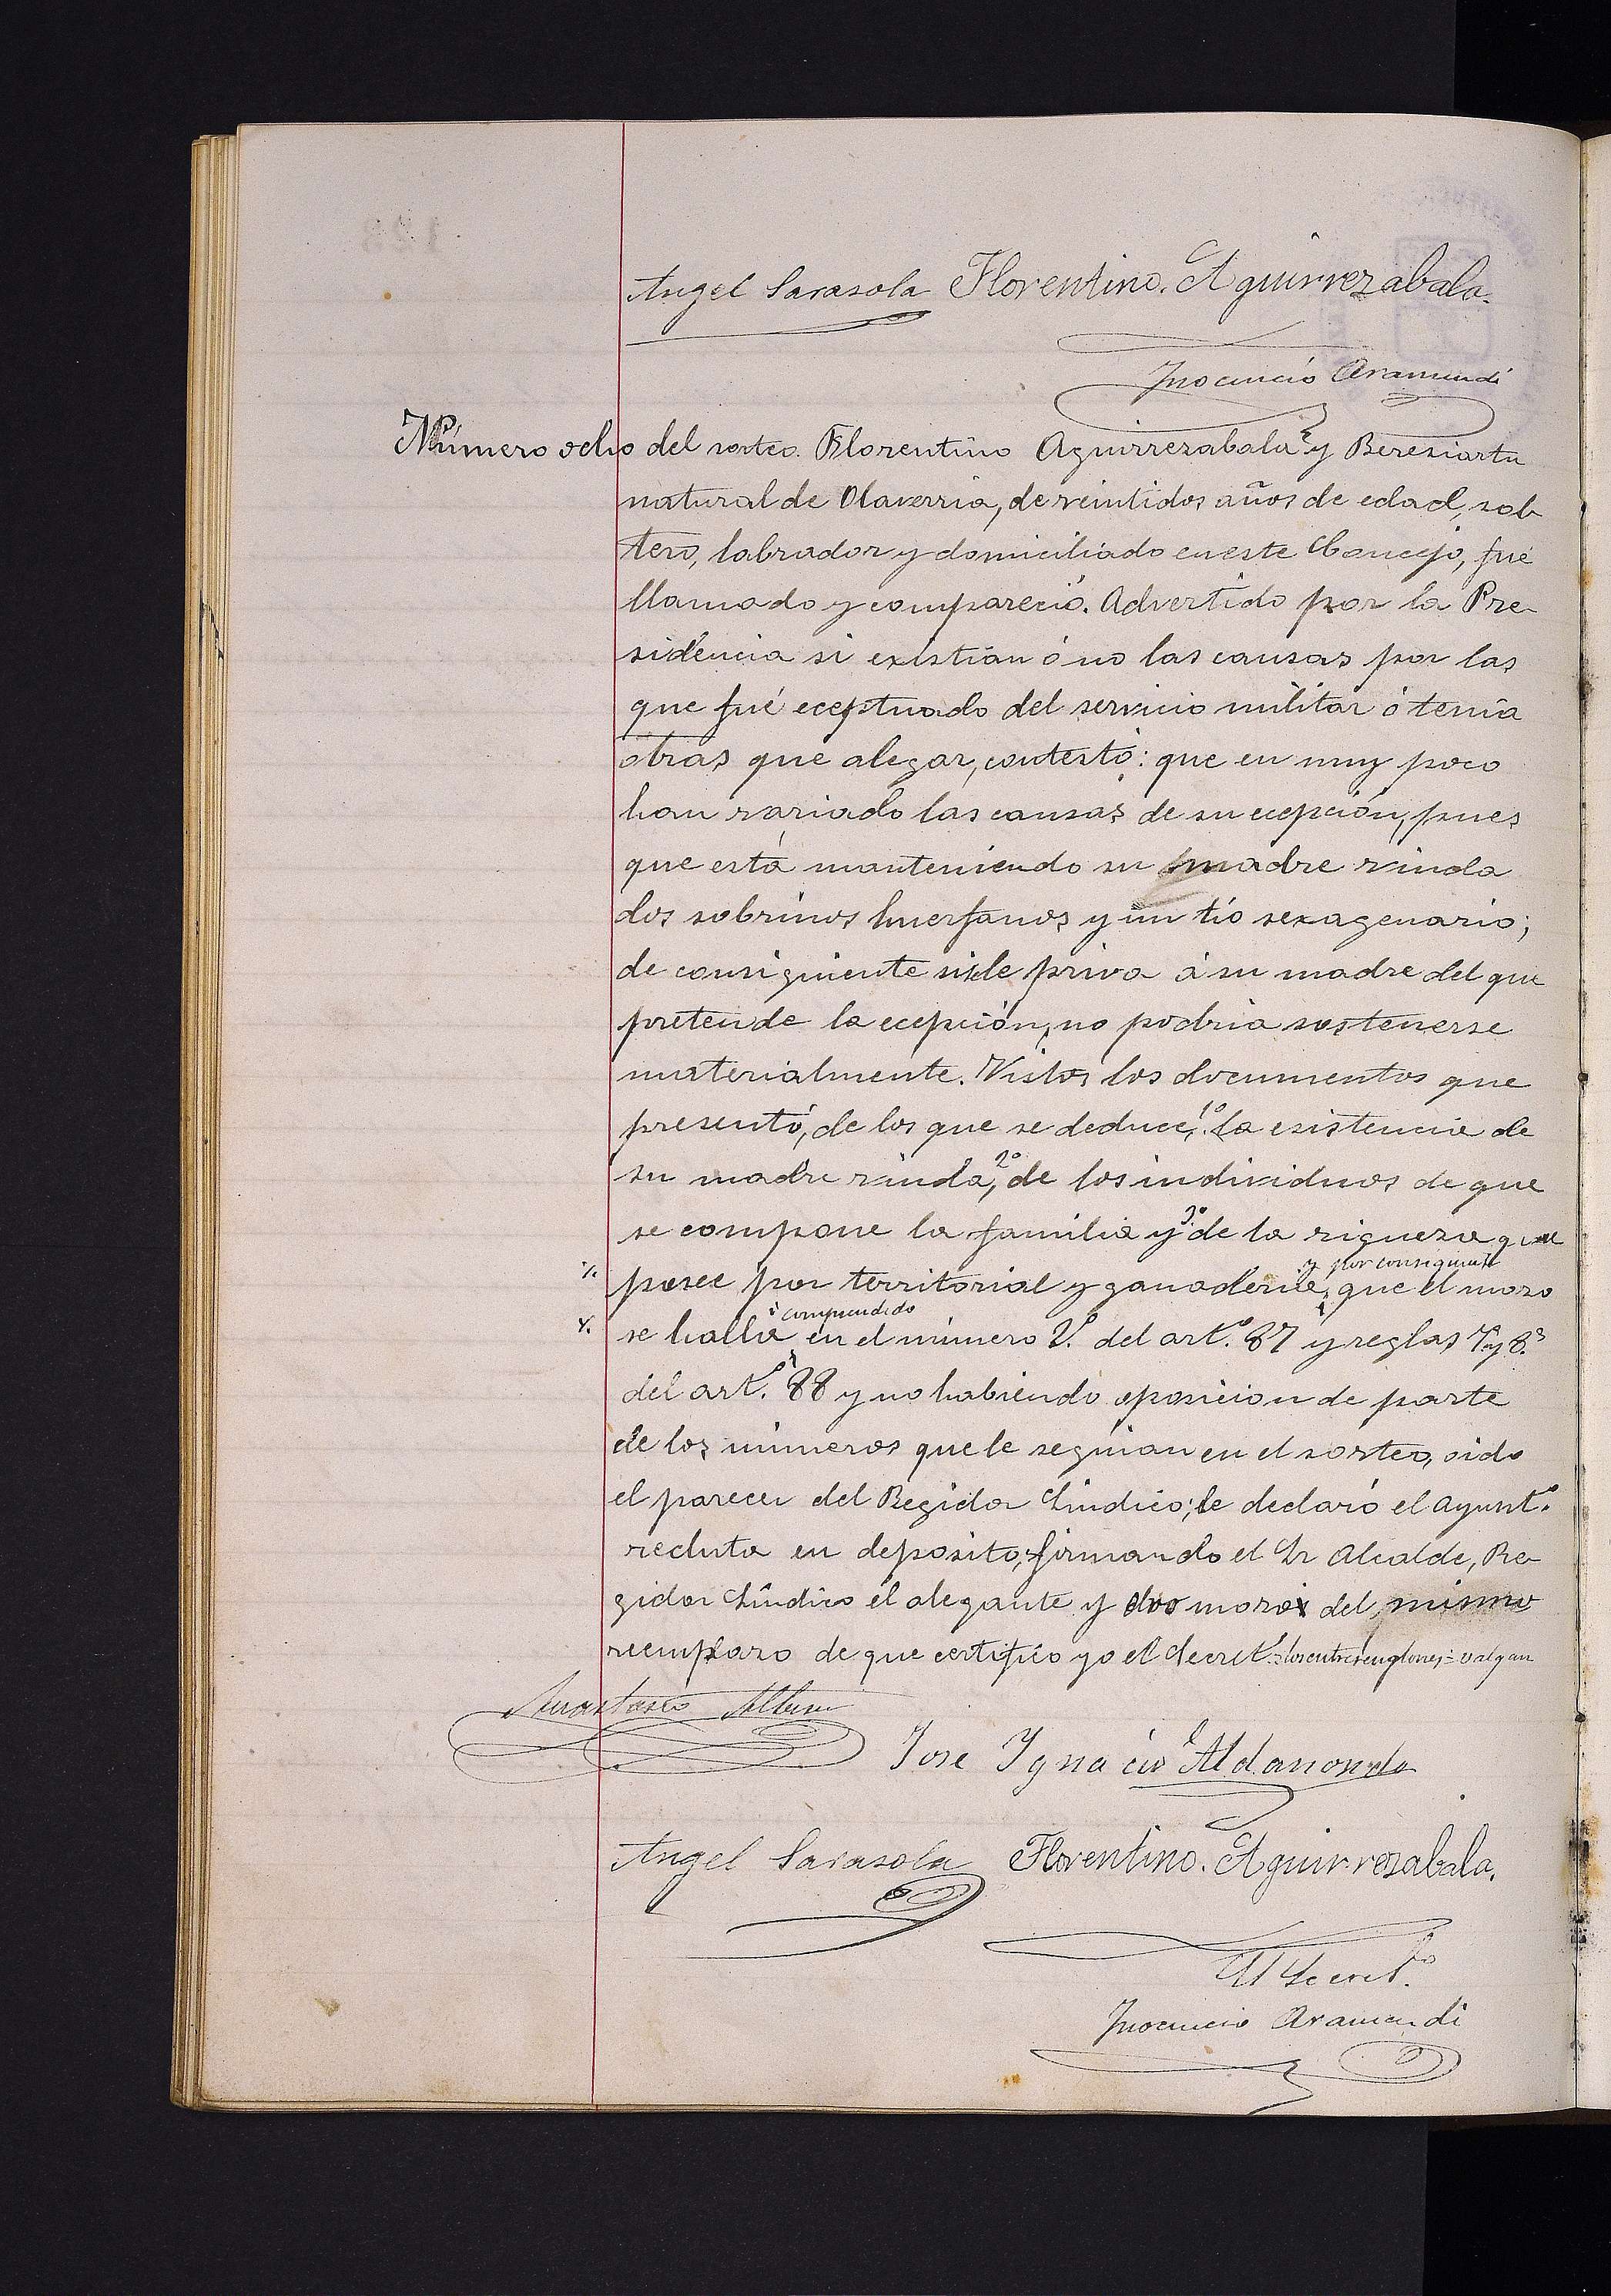 Angel Sarasola Florentino. Aguirrezabala.
Inocencio Aramendi
Número ocho del sorteo. Florentino Aguirrezabala y Bereziartu
natural de Olaverria, de veintidos años de edad, sol-
tero, labrador y domiciliado en este Concejo, fué
llamado y compareció. Advertido por la Pre-
sidencia si existian ó no las causas por las
que fué eceptuado del servicio militar ó tenía
otras que alegar, contestó: que en muy poco
han variado las causas de su ecepción, pues
que está manteniendo su madre viuda
dos sobrinos huerfanos y un tio sexagenario;
de consiguiente si se le priva á su madre del que
pretende la ecepción, no podria sostenerse
materialmente. Vistos los documentos que
presentó, de los que se deduce, 1º la existencia de
su madre viuda, 2º de los individuos de que
se compone la familia y 3º de la riqueza que
posee por territorial y ganaderia, y por consiguiente que el mozo
se halla comprendido en el número 2º. del artº. 87 y reglas 7 y 8ª
del artº. 88 y no habiendo oposicion de parte
de los números que le seguian en el sorteo, oido
el parecer del Regidor Sindico; le declaró el Ayuntº.
recluta en deposito, firmando el Sr Alcalde, Re-
gidor Sindico el alegante y dos mozos del mismo
reemplazo de que certifico yo el Secretº. los entrerenglones = valgan
Anastasio
Jose Ygnacio Aldanondo
Angel Sarasola Florentino. Aguirrezabala.
El Secretº.
Inocencio Aramendi